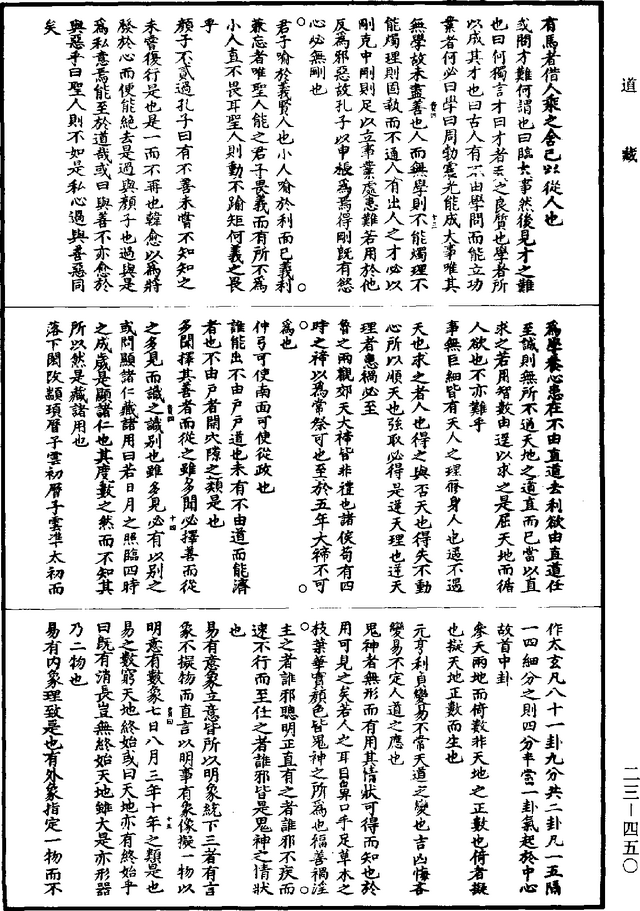 道藏
有馬者借人乘之舍己以從人也
或問才難何謂也曰臨大事然後見才之難
也曰何獨言才曰才者天之良質也學者所
以成其才也曰古人有不由學問而能立功
業者何必曰學曰周勃霍光能成大事唯其
無學故未盡善也人而無學則不能燭理不
能燭理則固執而不通人有出人之才必以
剛克中剛則足以立事業處患難若用於他
反為邪惡故孔子以申棖為焉得剛既有慾
心必無剛也
君子喻於義賢人也小人喻於利而已義利
兼忘者唯聖人能之君子畏義而有所不為
小人直不畏耳聖人則動不踰矩何義之畏
乎
顏子不貳過孔子曰有不善未嘗不知知之
未嘗復行是也是一而不再也韓愈以為將
發於心而便能絕去是過與顏子也過與是
為私意焉能至於道哉或曰與善不亦愈於
與惡乎曰聖人則不如是私心過與善惡同
矣
為學養心患在不由直道去利欲由直道任
至誠則無所不通天地之道直而已當以直
求之若用智數由逕以求之是屈天地而循
人欲也不亦難乎
事無巨細皆有天人之理修身人也遇不遇
天也求之者人也得之與否天也得失不動
心所以順天也強取必得是逆天理也逆天
理者患禍必至
魯之兩觀郊天大禘皆非禮也諸侯苟有四
時之禘以為常祭可也至於五年大禘不可
為也
仲弓可使南面可使從政也
誰能出不由戶戶道也未有不由道而能濟
者也不由戶者開穴隙之類是也
多聞擇其善者而從之雖多聞必擇善而從
之多見而識之識別也雖多見必有以別之
或問顯諸仁藏諸用曰若日月之照臨四時
之成歲是顯諸仁也其度數之然而不知其
所以然是藏諸用也
落下閎改顓頊曆子雲初曆子雲準太初而
作太玄凡八十一卦九分共二卦凡一五隔
一四細分之則四分半當一卦氣起於中心
故首中卦
參天兩地而倚數非天地之正數也倚者擬
也擬天地正數而生也
元亨利貞變易不常天道之變也吉凶悔吝
變易不定人道之應也
鬼神者無形而有用其情狀可得而知也於
用可見之矣若人之耳目鼻口手足草木之
枝葉華實顏色皆鬼神之所為也福善禍淫
主之者誰邪聰明正直有之者誰邪不疾而
速不行而至任之者誰邪皆是鬼神之情狀
也
易有意象立意皆所以明象統下三者有言
象不擬物而直言以明事有象像擬一物以
明意有數象七日八月三年十年之類是也
易之數窮天地終始或曰天地亦有終始乎
曰既有消長豈無終始天地雖大是亦形器
乃二物也
易有內象理致是也有外象指定一物而不
二三—四五〇